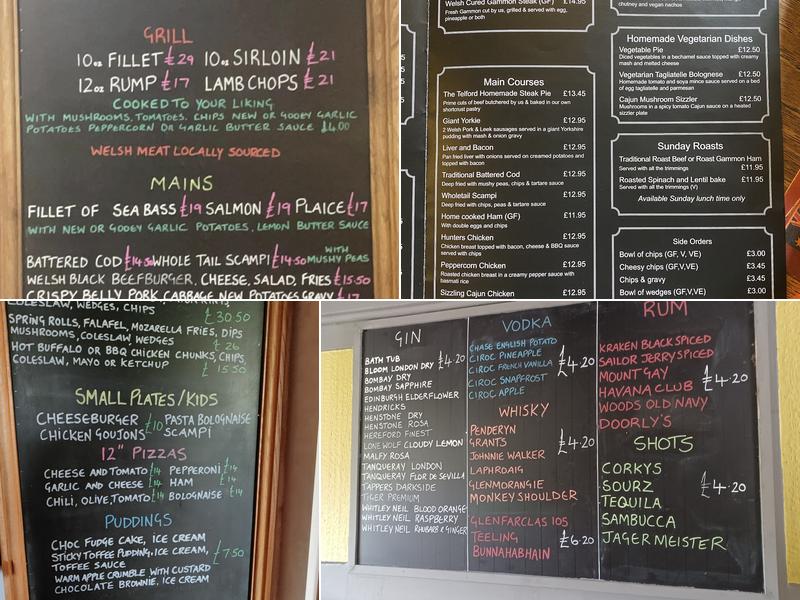 GRILL
10oz FILLET £29 10oz SIRLOIN £21
12oz RUMP £17 LAMB CHOPS £21
COOKED TO YOUR LIKING
WITH MUSHROOMS, TOMATOES, CHIPS NEW OR GOOEY GARLIC
POTATOES PEPPERCORN OR GARLIC BUTTER SAUCE £4.00
WELSH MEAT LOCALLY SOURCED
MAINS
FILLET OF SEA BASS £19 SALMON £19 PLAICE £17
WITH NEW OR GOOEY GARLIC POTATOES, LEMON BUTTER SAUCE
BATTERED COD £14.50 WHOLE TAIL SCAMPI £14.50 WITH MUSHY PEAS
WELSH BLACK BEEFBURGER, CHEESE, SALAD, FRIES £15.50
CRISPY BELLY PORK, CABBAGE NEW POTATOES GRAVY £17
Welsh Cured Gammon Steak (GF) £14.95
Fresh Gammon cut by us, grilled & served with egg,
pineapple or both
Main Courses
The Telford Homemade Steak Pie £13.45
Prime cuts of beef butchered by us & baked in our own
shortcrust pastry
Giant Yorkie £12.95
2 Welsh Pork & Leek sausages served in a giant Yorkshire
pudding with mash & onion gravy
Liver and Bacon £12.95
Pan fried liver with onions served on creamed potatoes and
topped with bacon
Traditional Battered Cod £12.95
Deep fried with mushy peas, chips & tartare sauce
Wholetail Scampi £12.95
Deep fried with chips, peas & tartare sauce
Home cooked Ham (GF) £11.95
With double eggs and chips
Hunters Chicken £12.95
Chicken breast topped with bacon, cheese & BBQ sauce
served with chips
Peppercorn Chicken £12.95
Roasted chicken breast in a creamy pepper sauce with
basmati rice
Sizzling Cajun Chicken £12.95
chutney and vegan nachos
Homemade Vegetarian Dishes
Vegetable Pie £12.50
Diced vegetables in a bechamel sauce topped with creamy
mash and melted cheese
Vegetarian Tagliatelle Bolognese £12.50
Homemade tomato and soya mince sauce served on a bed
of egg tagliatelle and parmesan
Cajun Mushroom Sizzler £12.50
Mushrooms in a spicy tomato Cajun sauce on a heated
sizzler plate
Sunday Roasts
Traditional Roast Beef or Roast Gammon Ham
Served with all the trimmings £11.95
Roasted Spinach and Lentil bake £11.95
Served with all the trimmings (V)
Available Sunday lunch time only
Side Orders
Bowl of chips (GF, V, VE) £3.00
Cheesy chips (GF,V,VE) £3.45
Chips & gravy £3.45
Bowl of wedges (GF,V,VE) £3.00
COLESLAW, WEDGES, CHIPS
£30.50
SPRING ROLLS, FALAFEL, MOZARELLA FRIES, DIPS
MUSHROOMS, COLESLAW WEDGES £26
HOT BUFFALO OR BBQ CHICKEN CHUNKS, CHIPS,
COLESLAW, MAYO OR KETCHUP £15.50
SMALL PLATES/KIDS
CHEESEBURGER £10 PASTA BOLOGNAISE
CHICKEN GOUJONS SCAMPI
12" PIZZAS
CHEESE AND TOMATO £14 PEPPERONI £14
GARLIC AND CHEESE £14 HAM £14
CHILI, OLIVE, TOMATO £14 BOLOGNAISE £14
PUDDINGS
CHOC FUDGE CAKE, ICE CREAM
STICKY TOFFEE PUDDING, ICE CREAM, £7.50
TOFFEE SAUCE
WARM APPLE CRUMBLE WITH CUSTARD
CHOCOLATE BROWNIE, ICE CREAM
GIN
BATH TUB £4.20
BLOOM LONDON DRY
BOMBAY DRY
BOMBAY SAPPHIRE
EDINBURGH ELDERFLOWER
HENDRICKS
HENSTONE DRY
HENSTONE ROSA
HEREFORD FINEST
LONE WOLF CLOUDY LEMON
MALFY ROSA
TANQUERAY LONDON
TANQUERAY FLOR DE SEVILLA
TAPPERS DARKSIDE
TIGER PREMIUM
WHITLEY NEIL BLOOD ORANGE
WHITLEY NEIL RASPBERRY
WHITLEY NEIL RHUBARB & GINGER
VODKA
CHASE ENGLISH POTATO
CIROC PINEAPPLE £4.20
CIROC FRENCH VANILLA
CIROC SNAPFROST
CIROC APPLE
WHISKY
PENDERYN
GRANTS £4.20
JOHNNIE WALKER
LAPHROAIG
GLENMORANGIE
MONKEY SHOULDER
GLENFARCLAS 105
TEELING £6.20
BUNNAHABHAIN
RUM
KRAKEN BLACK SPICED
SAILOR JERRY SPICED
MOUNT GAY £4.20
HAVANA CLUB
WOODS OLD NAVY
DOORLY'S
SHOTS
CORKYS
SOURZ £4.20
TEQUILA
SAMBUCCA
JAGERMEISTER